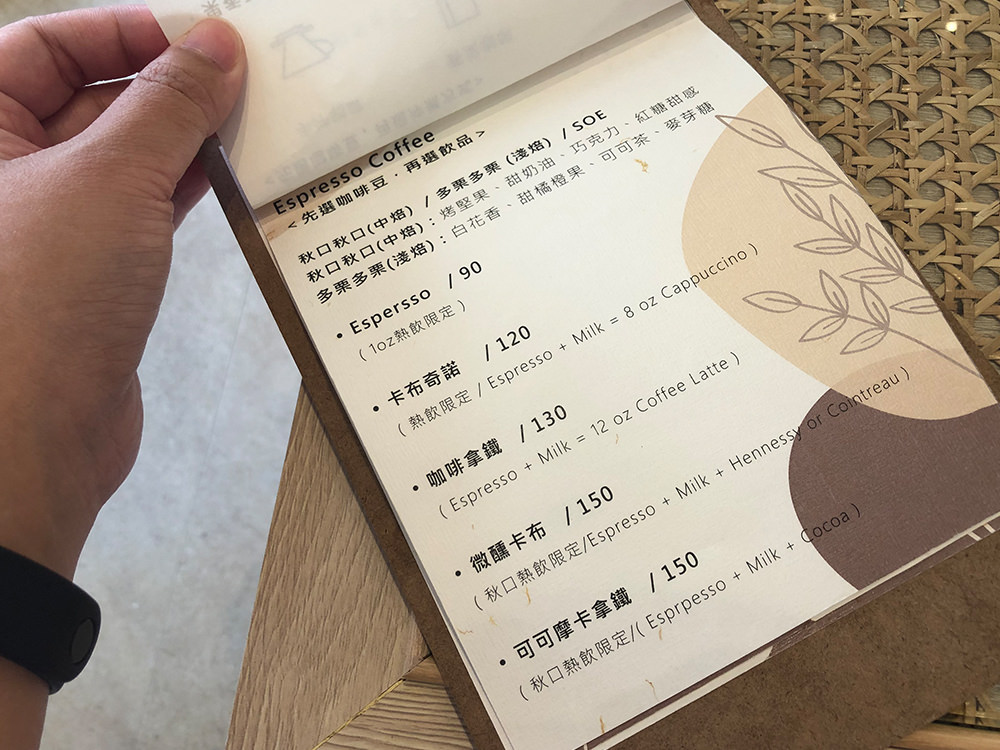 Espresso Coffee
< 先選咖啡豆．再選飲品 >
秋口秋口(中焙) / 多栗多栗 (淺焙) / SOE
秋口秋口(中焙)：烤堅果、甜奶油、巧克力、紅糖甜感
多栗多栗(淺焙)：白花香、甜橘橙果、可可茶、麥芽糖
• Espersso / 90
( 1oz熱飲限定 )
• 卡布奇諾 / 120
( 熱飲限定 / Espresso + Milk = 8 oz Cappuccino )
• 咖啡拿鐵 / 130
( Espresso + Milk = 12 oz Coffee Latte )
• 微醺卡布 / 150
( 秋口熱飲限定/Espresso + Milk + Hennessy or Cointreau )
• 可可摩卡拿鐵 / 150
( 秋口熱飲限定/( Esprpesso + Milk + Cocoa )